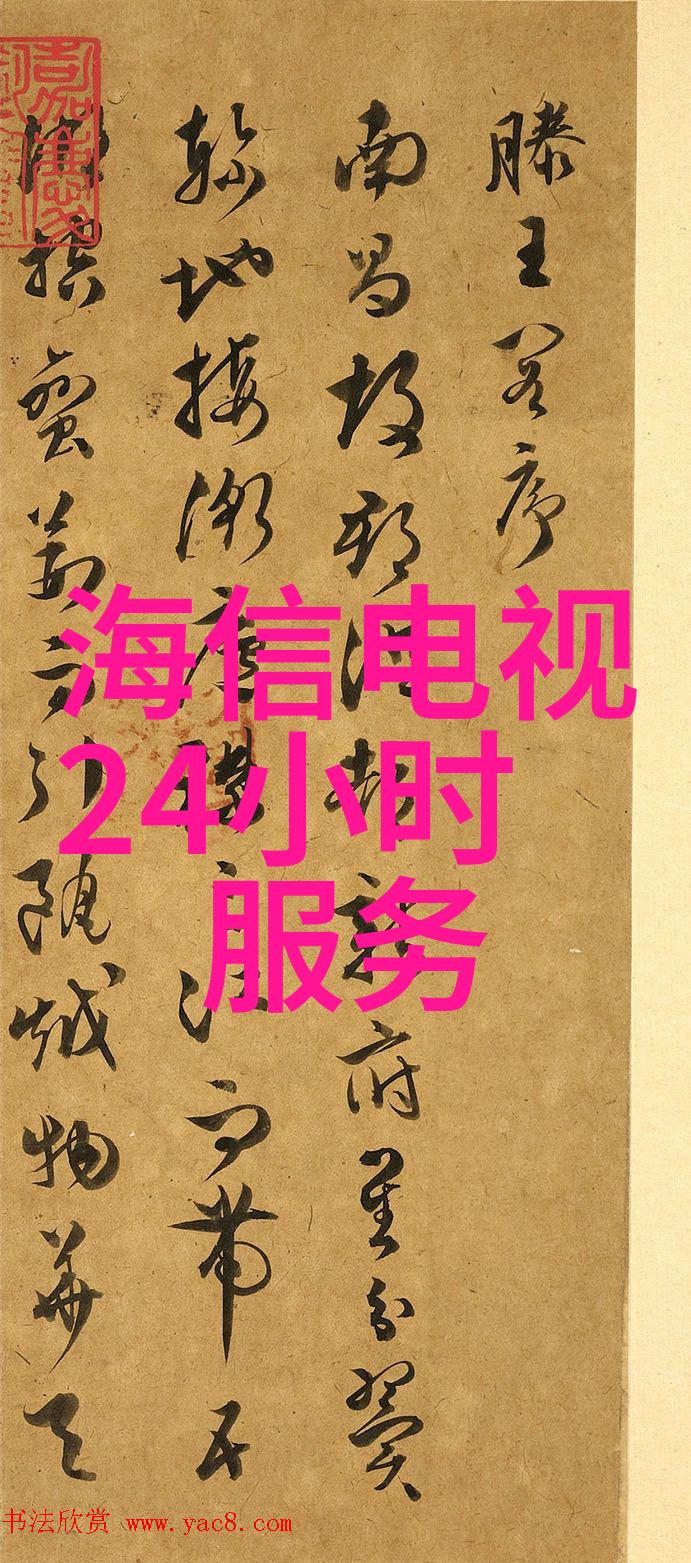 滕王阁序
南昌故郡洪都新府星分翼
軫地接衡廬襟三江而帶五
湖控蠻荊而引甌越物華天
海信电视
24小时
服务
书法欣赏 www.yac8.com